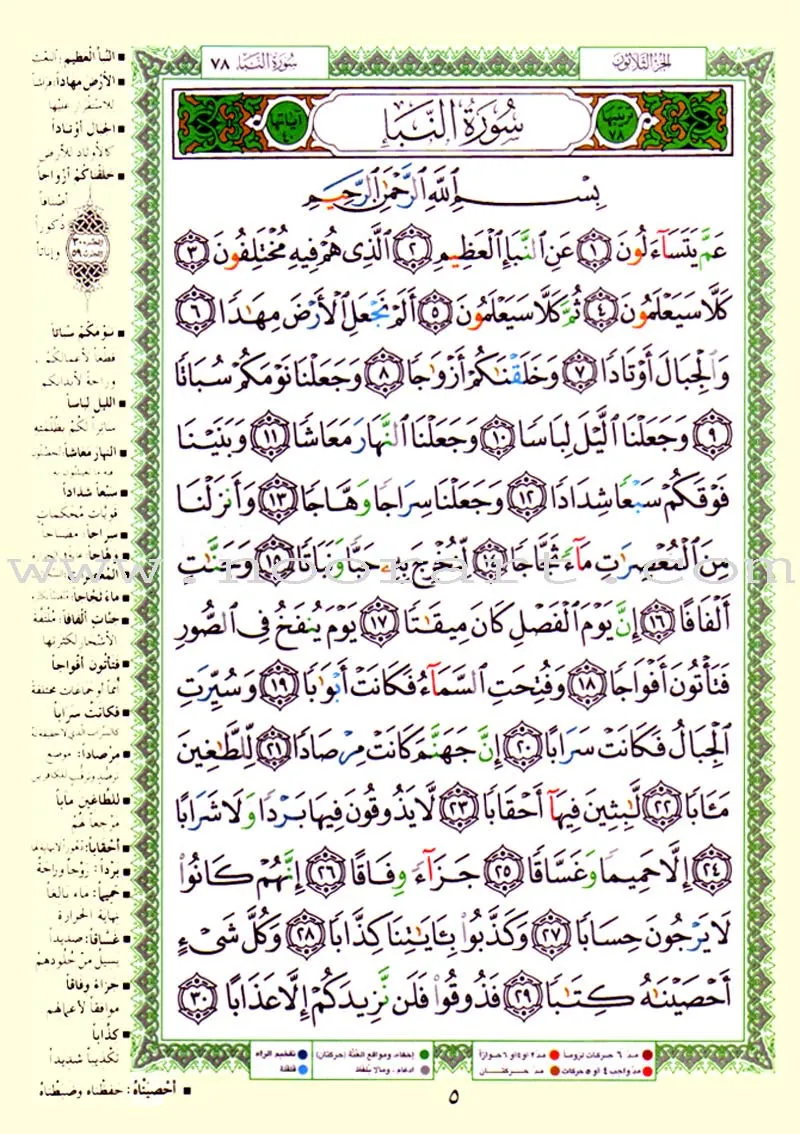 الجزء الثلاثون
سورة النبأ ٧٨
ترتيبها ٧٨
سُورَةُ النَّبَإِ
آياتها ٤٠
بِسْمِ ٱللَّهِ ٱلرَّحْمَٰنِ ٱلرَّحِيمِ
عَمَّ يَتَسَآءَلُونَ ١ عَنِ ٱلنَّبَإِ ٱلْعَظِيمِ ٢ ٱلَّذِى هُمْ فِيهِ مُخْتَلِفُونَ ٣
كَلَّا سَيَعْلَمُونَ ٤ ثُمَّ كَلَّا سَيَعْلَمُونَ ٥ أَلَمْ نَجْعَلِ ٱلْأَرْضَ مِهَٰدًا ٦
وَٱلْجِبَالَ أَوْتَادًا ٧ وَخَلَقْنَٰكُمْ أَزْوَٰجًا ٨ وَجَعَلْنَا نَوْمَكُمْ سُبَاتًا
٩ وَجَعَلْنَا ٱلَّيْلَ لِبَاسًا ١٠ وَجَعَلْنَا ٱلنَّهَارَ مَعَاشًا ١١ وَبَنَيْنَا
فَوْقَكُمْ سَبْعًا شِدَادًا ١٢ وَجَعَلْنَا سِرَاجًا وَهَّاجًا ١٣ وَأَنزَلْنَا
مِنَ ٱلْمُعْصِرَٰتِ مَآءً ثَجَّاجًا ١٤ لِّنُخْرِجَ بِهِۦ حَبًّا وَنَبَاتًا ١٥ وَجَنَّٰتٍ
أَلْفَافًا ١٦ إِنَّ يَوْمَ ٱلْفَصْلِ كَانَ مِيقَٰتًا ١٧ يَوْمَ يُنفَخُ فِى ٱلصُّورِ
فَتَأْتُونَ أَفْوَاجًا ١٨ وَفُتِحَتِ ٱلسَّمَآءُ فَكَانَتْ أَبْوَٰبًا ١٩ وَسُيِّرَتِ
ٱلْجِبَالُ فَكَانَتْ سَرَابًا ٢٠ إِنَّ جَهَنَّمَ كَانَتْ مِرْصَادًا ٢١ لِّلطَّٰغِينَ
مَـَٔابًا ٢٢ لَّٰبِثِينَ فِيهَآ أَحْقَابًا ٢٣ لَّا يَذُوقُونَ فِيهَا بَرْدًا وَلَا شَرَابًا
٢٤ إِلَّا حَمِيمًا وَغَسَّاقًا ٢٥ جَزَآءً وِفَاقًا ٢٦ إِنَّهُمْ كَانُوا۟
لَا يَرْجُونَ حِسَابًا ٢٧ وَكَذَّبُوا۟ بِـَٔايَٰتِنَا كِذَّابًا ٢٨ وَكُلَّ شَىْءٍ
أَحْصَيْنَٰهُ كِتَٰبًا ٢٩ فَذُوقُوا۟ فَلَن نَّزِيدَكُمْ إِلَّا عَذَابًا ٣٠
النَّبأ العَظيم
الأرْضَ مِهَاداً:
للاسْتقْرار عَلَيْها
الجبالَ أوْتَاداً
كالأوتاد للأرض
خلَقْناكُمْ أزْواجاً
أصْنَافاً
ذُكوراً
وإناثاً
الحزب ٥٩
نَوْمَكُمْ سُبَاتاً
قَطْعاً لأعْمالِكُمْ
وراحةً لأبدانكم
اللَّيلَ لِبَاساً
ساتِراً لَكُمْ بظُلْمَتِه
النهارَ مَعَاشاً:
سَبْعاً شِدَاداً
قويّات مُحْكَمات
سِراجاً: مصباحاً
وهّاجاً:
ماءً ثَجّاجاً:
جَنّاتٍ ألْفَافاً: مُلْتَفَّة
الأشْجار لكَثْرتها
فتأتُونَ أفْواجاً
أُمَماً أو جماعات مختلفة
فكانَتْ سَرَاباً
كالسَّراب الذي لا حقيقة له
مِرْصاداً: موضع
للطّاغينَ مآباً
مَرْجعاً لهُمْ
أحْقَاباً:
بَرْداً: رَوْحاً وراحةً
حَميماً: ماءً بالغاً
نهايَةَ الحرارة
غَسّاقاً: صديداً
يَسيلُ من جُلُودهمْ
جَزاءً وِفَاقاً
موافقاً لأعْمالهم
كِذّاباً
تكْذيباً شديداً
أحْصَيْنَاهُ: حفظناه وضبطناه
www.noorart.com
مد ٦ حركات لزوماً
مد ٢ أو ٤ أو ٦ جوازاً
إخفاء، ومواقع الغُنَّة (حركتان)
تفخيم الراء
مد واجب ٤ أو ٥ حركات
مد حركتان
ادغام، ومالا يُلفظ
قلقلة
٥